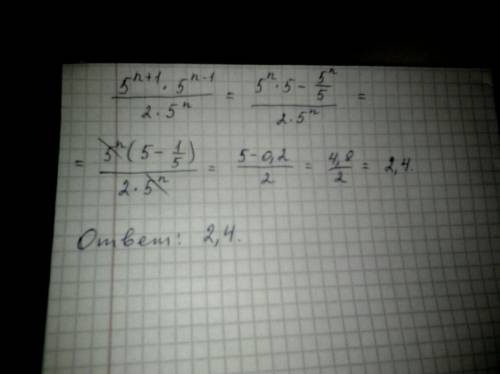 (5^{n+1} · 5^{n-1}) / (2 · 5^n) = (5^n · 5 - 5^n/5) / (2 · 5^n) =
= (5^n (5 - 1/5)) / (2 · 5^n) = (5 - 0,2) / 2 = 4,8 / 2 = 2,4.
Ответ: 2,4.